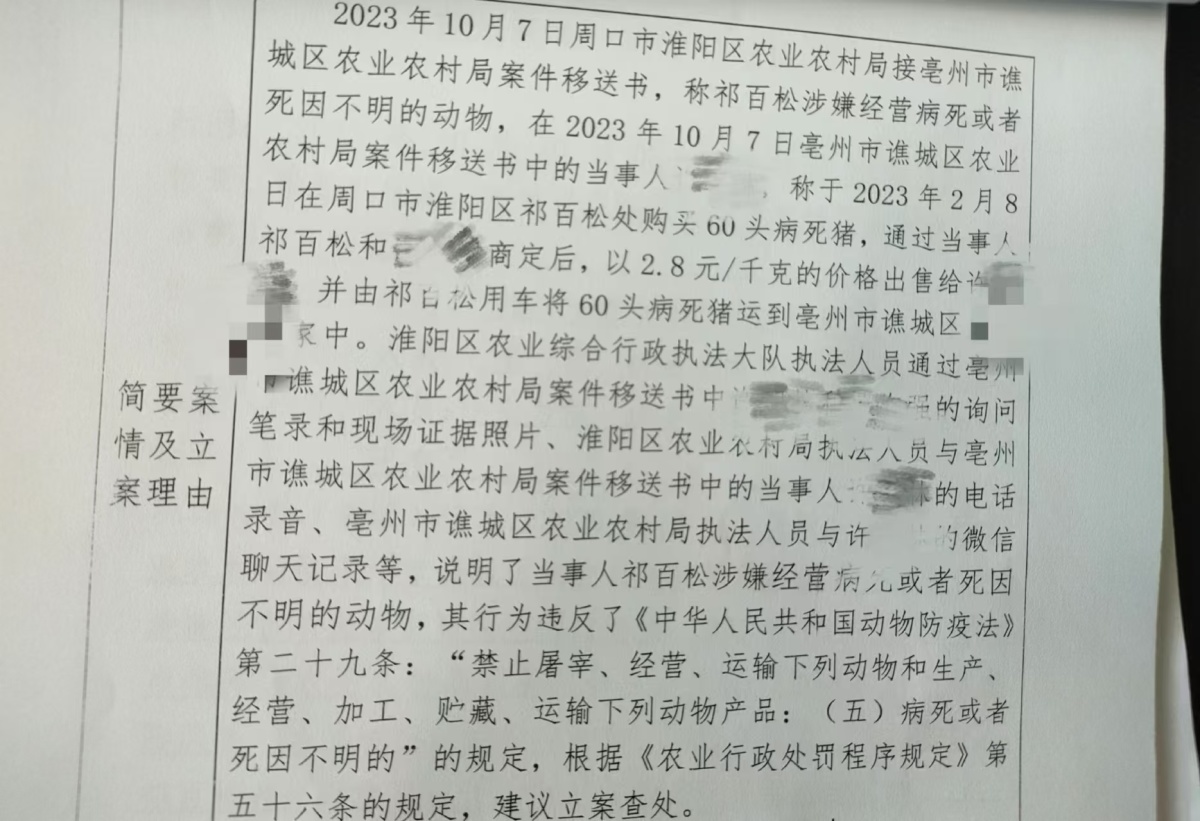 简要案
情及立
案理由
2023年10月7日周口市淮阳区农业农村局接亳州市谯
城区农业农村局案件移送书，称祁百松涉嫌经营病死或者
死因不明的动物，在2023年10月7日亳州市谯城区农业
农村局案件移送书中的当事人 称于2023年2月8
日在周口市淮阳区祁百松处购买60头病死猪，通过当事人
祁百松和 商定后，以2.8元/千克的价格出售给许
并由祁百松用车将60头病死猪运到亳州市谯城区
家中。淮阳区农业综合行政执法大队执法人员通过亳州
市谯城区农业农村局案件移送书中 强的询问
笔录和现场证据照片、淮阳区农业农村局执法人员与亳州
市谯城区农业农村局案件移送书中的当事人 的电话
录音、亳州市谯城区农业农村局执法人员与许 的微信
聊天记录等，说明了当事人祁百松涉嫌经营病死或者死因
不明的动物，其行为违反了《中华人民共和国动物防疫法》
第二十九条：“禁止屠宰、经营、运输下列动物和生产、
经营、加工、贮藏、运输下列动物产品：（五）病死或者
死因不明的”的规定，根据《农业行政处罚程序规定》第
五十六条的规定，建议立案查处。